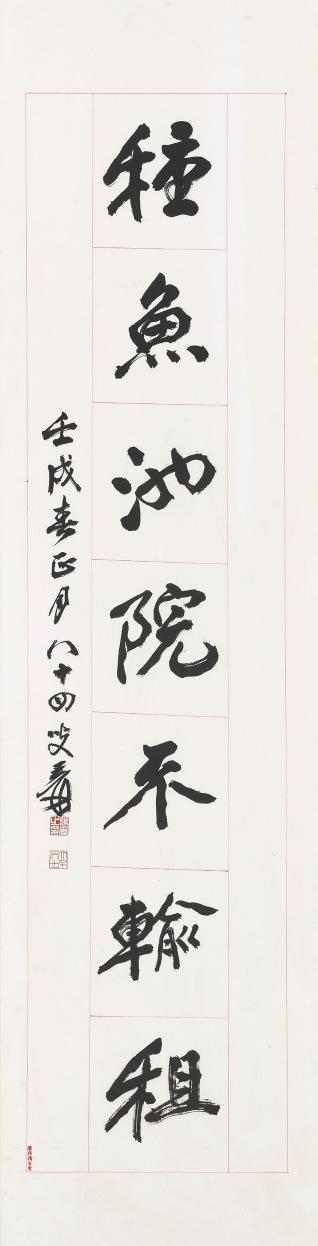 種魚池院不輸租
壬戌春正月八十四叟爰